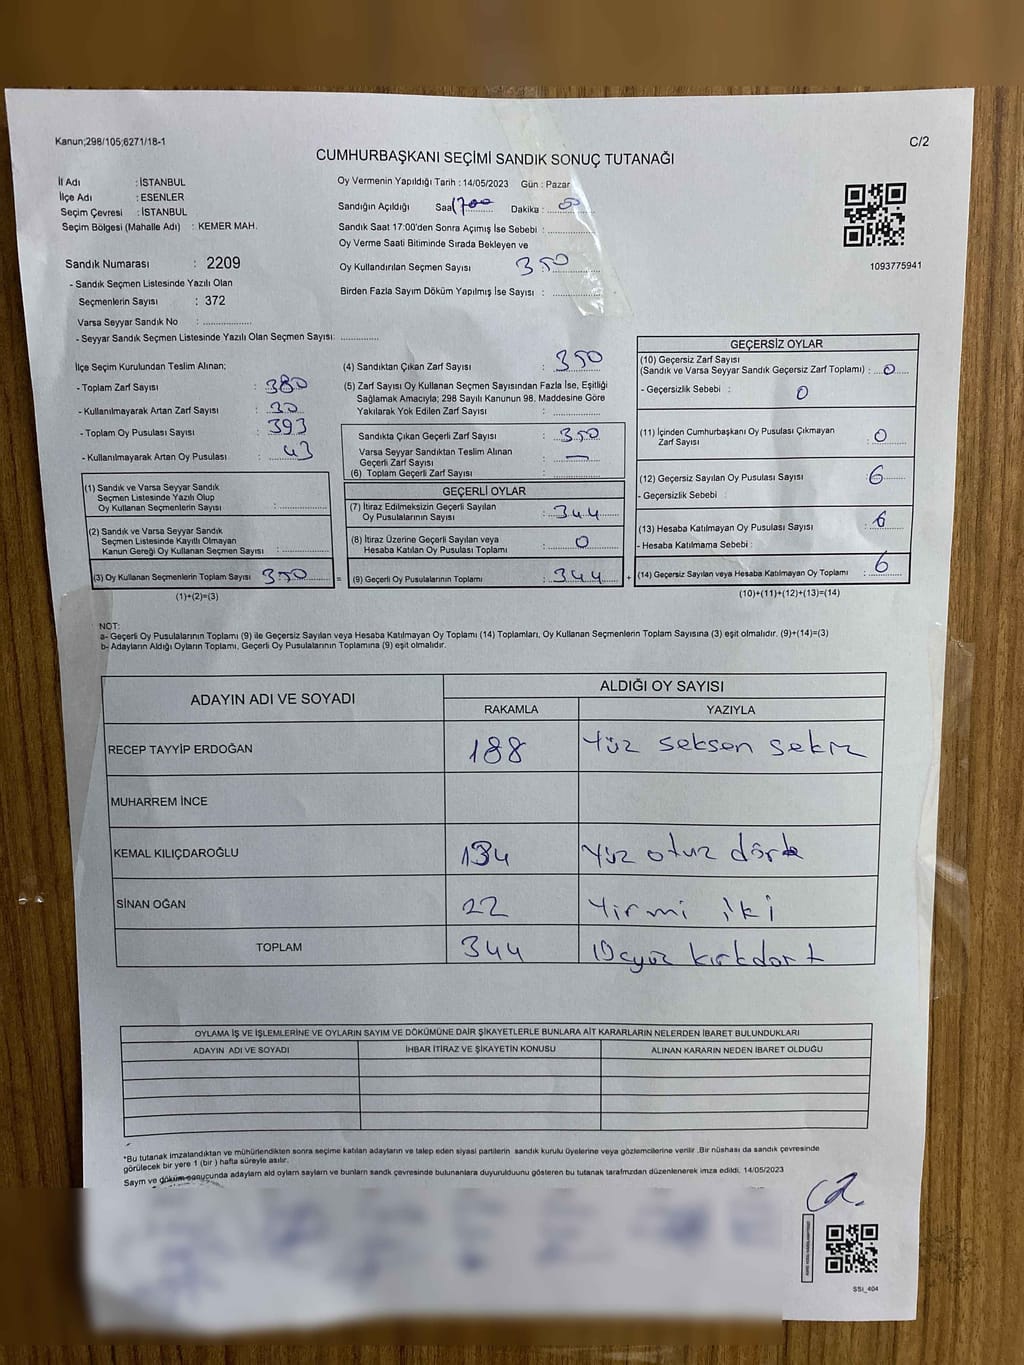 Kanun;298/105;6271/18-1
C/2
CUMHURBAŞKANI SEÇİMİ SANDIK SONUÇ TUTANAĞI
İl Adı : İSTANBUL
İlçe Adı : ESENLER
Seçim Çevresi : İSTANBUL
Seçim Bölgesi (Mahalle Adı) : KEMER MAH.
Sandık Numarası : 2209
- Sandık Seçmen Listesinde Yazılı Olan
Seçmenlerin Sayısı : 372
Varsa Seyyar Sandık No :
- Seyyar Sandık Seçmen Listesinde Yazılı Olan Seçmen Sayısı:
Oy Vermenin Yapıldığı Tarih : 14/05/2023 Gün : Pazar
Sandığın Açıldığı Saat 1700 Dakika : 0
Sandık Saat 17:00'den Sonra Açımış İse Sebebi :
Oy Verme Saati Bitiminde Sırada Bekleyen ve
Oy Kullandırılan Seçmen Sayısı 350
Birden Fazla Sayım Döküm Yapılmış İse Sayısı :
1093775941
İlçe Seçim Kurulundan Teslim Alınan;
- Toplam Zarf Sayısı : 380
- Kullanılmayarak Artan Zarf Sayısı : 30
- Toplam Oy Pusulası Sayısı : 393
- Kullanılmayarak Artan Oy Pusulası : 43
(1) Sandık ve Varsa Seyyar Sandık
Seçmen Listesinde Yazılı Olup
Oy Kullanan Seçmenlerin Sayısı :
(2) Sandık ve Varsa Seyyar Sandık
Seçmen Listesinde Kayıtlı Olmayan
Kanun Gereği Oy Kullanan Seçmen Sayısı :
(3) Oy Kullanan Seçmenlerin Toplam Sayısı 350
(1)+(2)=(3)
(4) Sandıktan Çıkan Zarf Sayısı : 350
(5) Zarf Sayısı Oy Kullanan Seçmen Sayısından Fazla İse, Eşitliği
Sağlamak Amacıyla; 298 Sayılı Kanunun 98. Maddesine Göre
Yakılarak Yok Edilen Zarf Sayısı :
Sandıkta Çıkan Geçerli Zarf Sayısı : 350
Varsa Seyyar Sandıktan Teslim Alınan
Geçerli Zarf Sayısı : —
(6) Toplam Geçerli Zarf Sayısı :
GEÇERLİ OYLAR
(7) İtiraz Edilmeksizin Geçerli Sayılan
Oy Pusulalarının Sayısı : 344
(8) İtiraz Üzerine Geçerli Sayılan veya
Hesaba Katılan Oy Pusulası Toplamı : 0
= (9) Geçerli Oy Pusulalarının Toplamı : 344 +
GEÇERSİZ OYLAR
(10) Geçersiz Zarf Sayısı
(Sandık ve Varsa Seyyar Sandık Geçersiz Zarf Toplamı) : 0
- Geçersizlik Sebebi : 0
(11) İçinden Cumhurbaşkanı Oy Pusulası Çıkmayan
Zarf Sayısı : 0
(12) Geçersiz Sayılan Oy Pusulası Sayısı : 6
- Geçersizlik Sebebi :
(13) Hesaba Katılmayan Oy Pusulası Sayısı : 6
- Hesaba Katılmama Sebebi :
(14) Geçersiz Sayılan veya Hesaba Katılmayan Oy Toplamı : 6
(10)+(11)+(12)+(13)=(14)
NOT:
a- Geçerli Oy Pusulalarının Toplamı (9) ile Geçersiz Sayılan veya Hesaba Katılmayan Oy Toplamı (14) Toplamları, Oy Kullanan Seçmenlerin Toplam Sayısına (3) eşit olmalıdır. (9)+(14)=(3)
b- Adayların Aldığı Oyların Toplamı, Geçerli Oy Pusulalarının Toplamına (9) eşit olmalıdır.
ADAYIN ADI VE SOYADI ALDIĞI OY SAYISI
RAKAMLA YAZIYLA
RECEP TAYYİP ERDOĞAN 188 Yüz seksen sekiz
MUHARREM İNCE
KEMAL KILIÇDAROĞLU 134 Yüz otuz dört
SİNAN OĞAN 22 Yirmi iki
TOPLAM 344 Üçyüz kırkdört
OYLAMA İŞ VE İŞLEMLERİNE VE OYLARIN SAYIM VE DÖKÜMÜNE DAİR ŞİKAYETLERLE BUNLARA AİT KARARLARIN NELERDEN İBARET BULUNDUKLARI
ADAYIN ADI VE SOYADI İHBAR İTİRAZ VE ŞİKAYETİN KONUSU ALINAN KARARIN NEDEN İBARET OLDUĞU
*Bu tutanak imzalandıktan ve mühürlendikten sonra seçime katılan adayların ve talep eden siyasi partilerin sandık kurulu üyelerine veya gözlemcilerine verilir .Bir nüshası da sandık çevresinde
görülecek bir yere 1 (bir ) hafta süreyle asılır.
Saym ve döküm sonucunda adaylarn ald oylarn saylarn ve bunlarn sandk çevresinde bulunanlara duyurulduunu gösteren bu tutanak tarafmzdan düzenlenerek imza edildi. 14/05/2023
SSt_404